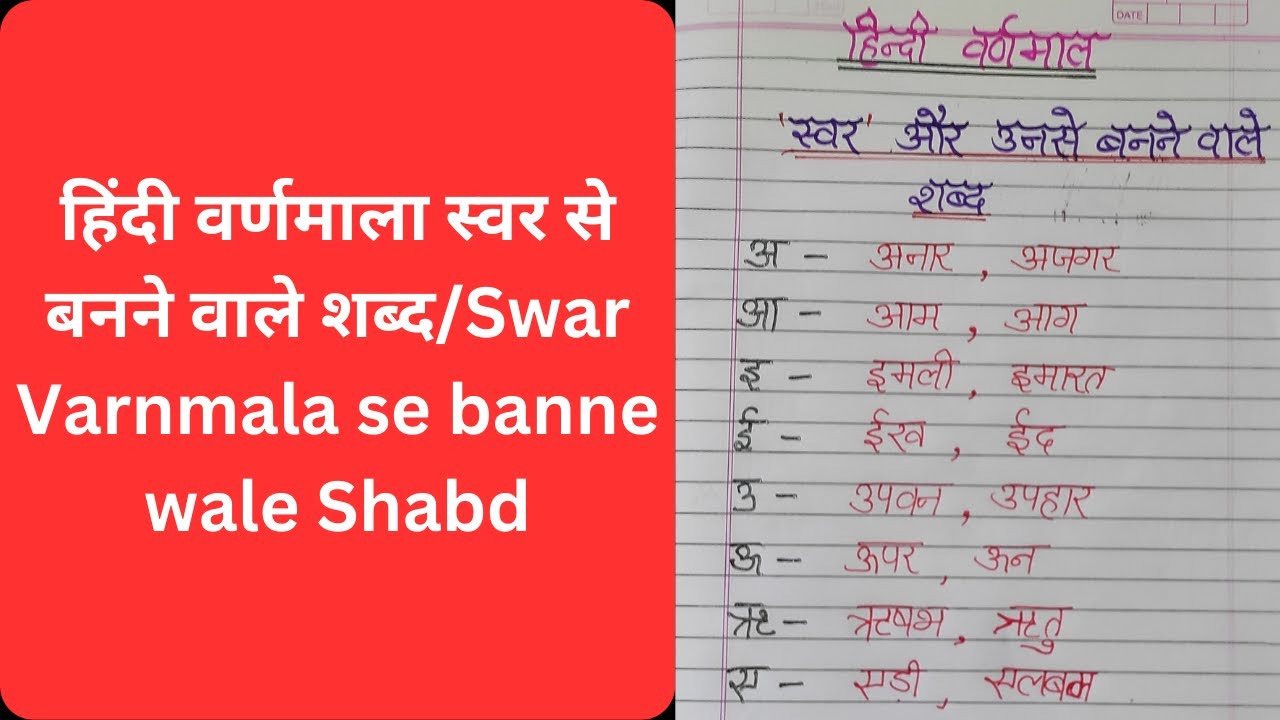 हिंदी वर्णमाला स्वर से
बनने वाले शब्द/Swar
Varnmala se banne
wale Shabd
DATE
हिन्दी वर्णमाल
'स्वर' और उनसे बनने वाले
शब्द
अ - अनार , अजगर
आ - आम , आग
इ - इमली , इमारत
ई - ईख , ईद
उ - उपवन , उपहार
ऊ - ऊपर , ऊन
ऋ - ऋषभ , ऋतु
ए - एड़ी , एलबम